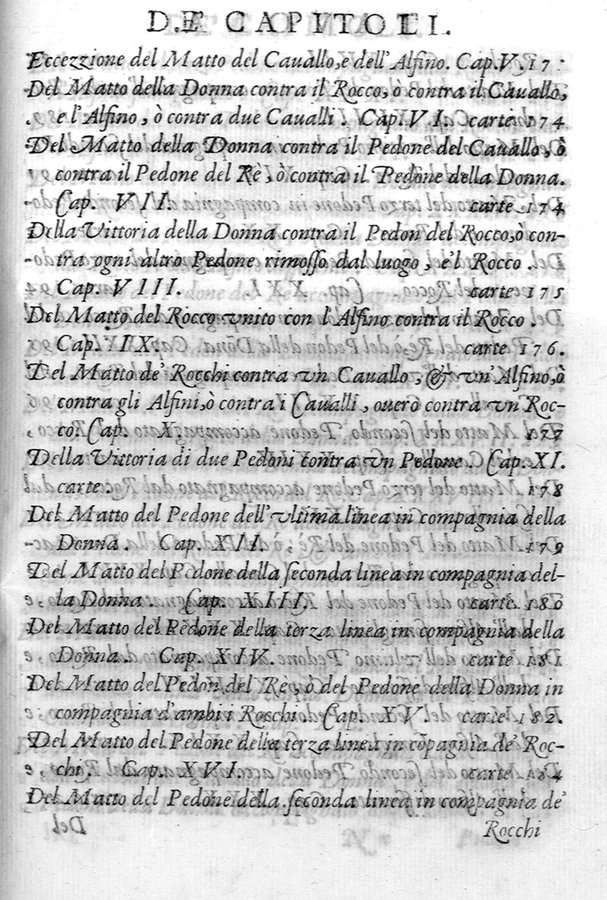 DE CAPITOLI.
Eccezzione del Matto del Cauallo, e dell'Alfino. Cap. V. 17
Del Matto della Donna contra il Rocco, ò contra il Cauallo,
e l'Alfino, ò contra due Caualli. Cap. VI. carte. 174
Del Matto della Donna contra il Pedone del Cauallo, ò
contra il Pedone del Rè, ò contra il Pedone della Donna.
Cap. VII. carte. 174
Della Vittoria della Donna contra il Pedon del Rocco, ò con-
tra ogni altro Pedone rimosso dal luogo, e'l Rocco.
Cap. VIII. carte. 175
Del Matto del Rocco vnito con l'Alfino contra il Rocco.
Cap. VIIII. carte 176.
Del Matto de' Rocchi contra vn Cauallo, & vn'Alfino, ò
contra gli Alfini, ò contra i Caualli, ouerò contra vn Roc-
co. Cap. X. 177
Della Vittoria di due Pedoni contra vn Pedone. Cap. XI.
carte. 178
Del Matto del Pedone dell'vltima linea in compagnia della
Donna. Cap. XII. 179
Del Matto del Pedone della seconda linea in compagnia del-
la Donna. Cap. XIII. carte. 180
Del Matto del Pedone della terza linea in compagnia della
Donna. Cap. XIV. carte. 181
Del Matto del Pedon del Re, ò del Pedone della Donna in
compagnia d'ambi i Rocchi Cap. XV. carte 182.
Del Matto del Pedone della terza linea in cōpagnia de' Roc-
chi. Cap. XVI. carte. 184
Del Matto del Pedone della seconda linea in compagnia de'
Rocchi